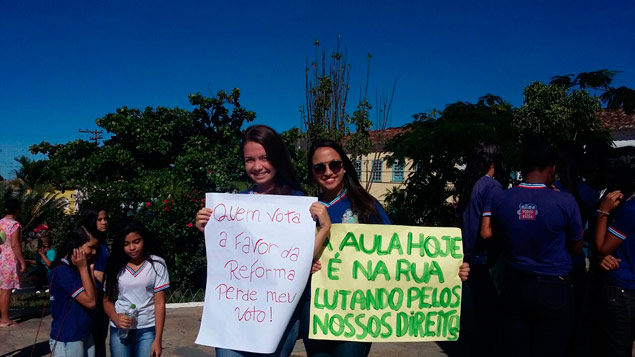 Quem vota
a favor da
Reforma
perde meu
voto!
A AULA HOJE
É NA RUA
LUTANDO PELOS
NOSSOS DIREITO